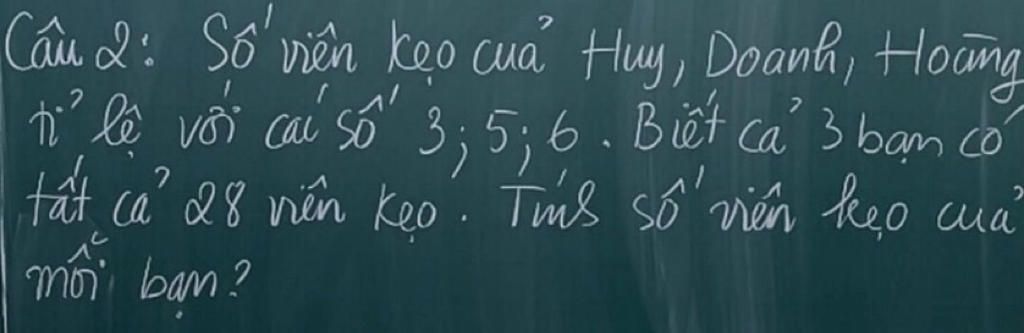 Câu 2: Số viên kẹo của Huy, Doanh, Hoàng
tỉ lệ với các số 3; 5; 6. Biết cả 3 bạn có
tất cả 28 viên kẹo. Tính số viên kẹo của
mỗi bạn?